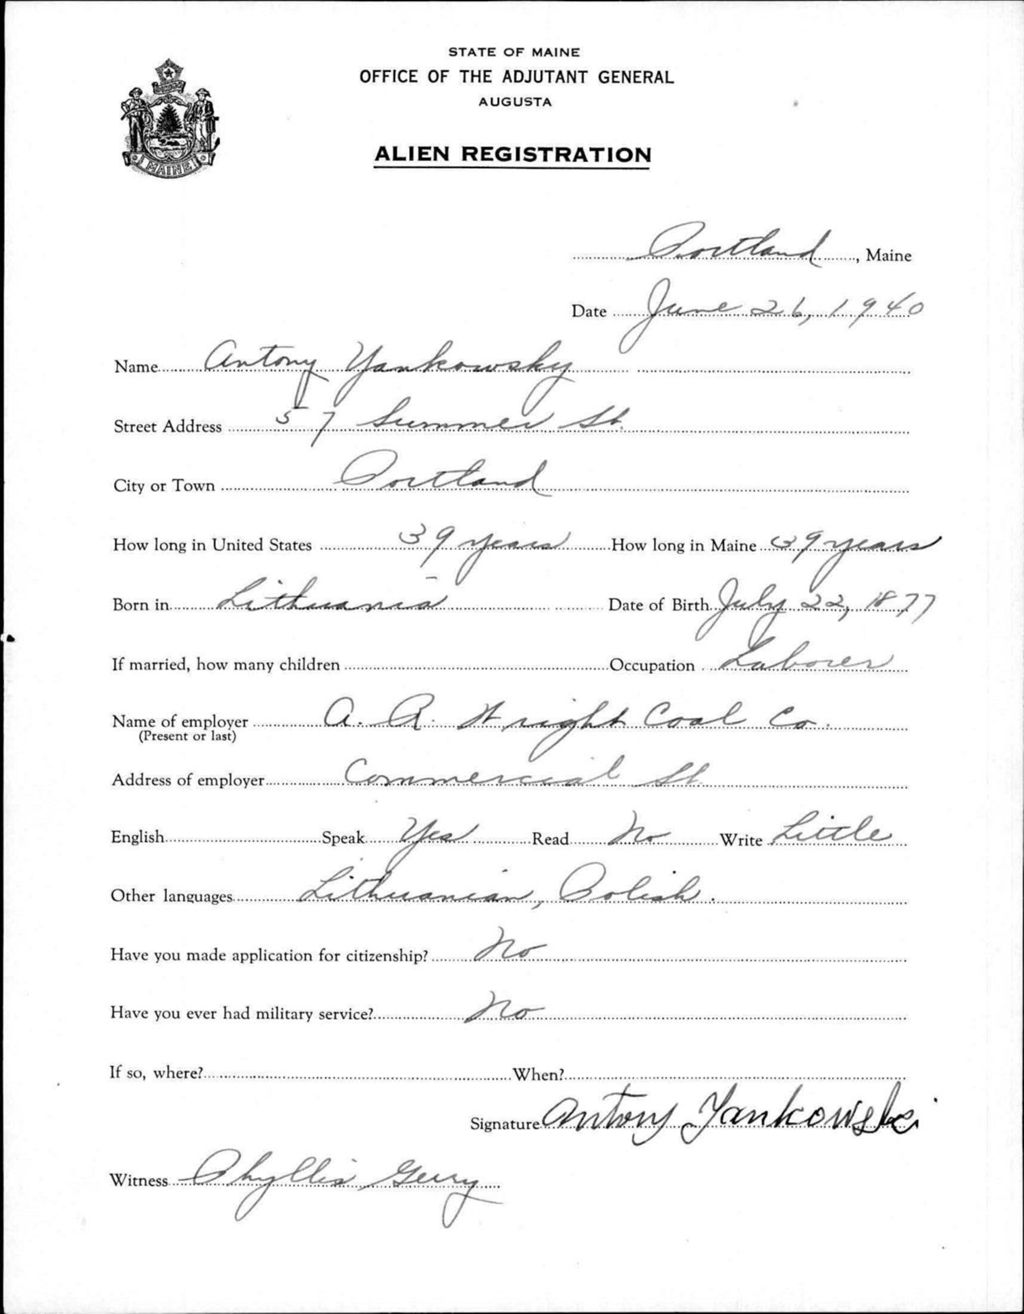 STATE OF MAINE
OFFICE OF THE ADJUTANT GENERAL
AUGUSTA
ALIEN REGISTRATION
MAINE
Portland, Maine
Date June 26, 1940
Name Antony Yankowsky
Street Address 57 Summer St.
City or Town Portland
How long in United States 39 years How long in Maine 39 years
Born in Lithuania Date of Birth July 22, 1877
If married, how many children Occupation Laborer
Name of employer A. R. Wright Coal Co.
(Present or last)
Address of employer Commercial St.
English Speak Yes Read No Write Little
Other languages Lithuanian, Polish.
Have you made application for citizenship? No
Have you ever had military service? No
If so, where? When?
Signature Antony Yankowski
Witness Phyllis Gerry